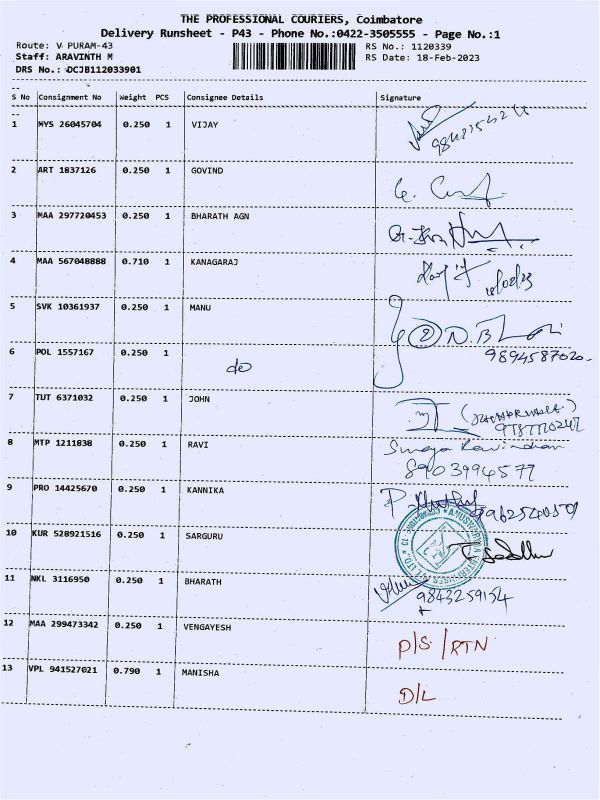 THE PROFESSIONAL COURIERS, Coimbatore
Delivery Runsheet - P43 - Phone No.:0422-3505555 - Page No.:1
Route: V PURAM-43 RS No.: 1120339
Staff: ARAVINTH M RS Date: 18-Feb-2023
DRS No.: DCJB112033901
S No Consignment No Weight PCS Consignee Details Signature
1 MYS 26045704 0.250 1 VIJAY
2 ART 1837126 0.250 1 GOVIND
3 MAA 297720453 0.250 1 BHARATH AGN
4 MAA 567048888 0.710 1 KANAGARAJ
5 SVK 10361937 0.250 1 MANU
9894587020
6 POL 1557167 0.250 1 do
7 TUT 6371032 0.250 1 JOHN
8 MTP 1211838 0.250 1 RAVI
8903994577
9 PRO 14425670 0.250 1 KANNIKA
10 KUR 528921516 0.250 1 SARGURU
11 NKL 3116950 0.250 1 BHARATH
9843259154
12 MAA 299473342 0.250 1 VENGAYESH P/S/RTN
13 VPL 941527021 0.790 1 MANISHA
D/L